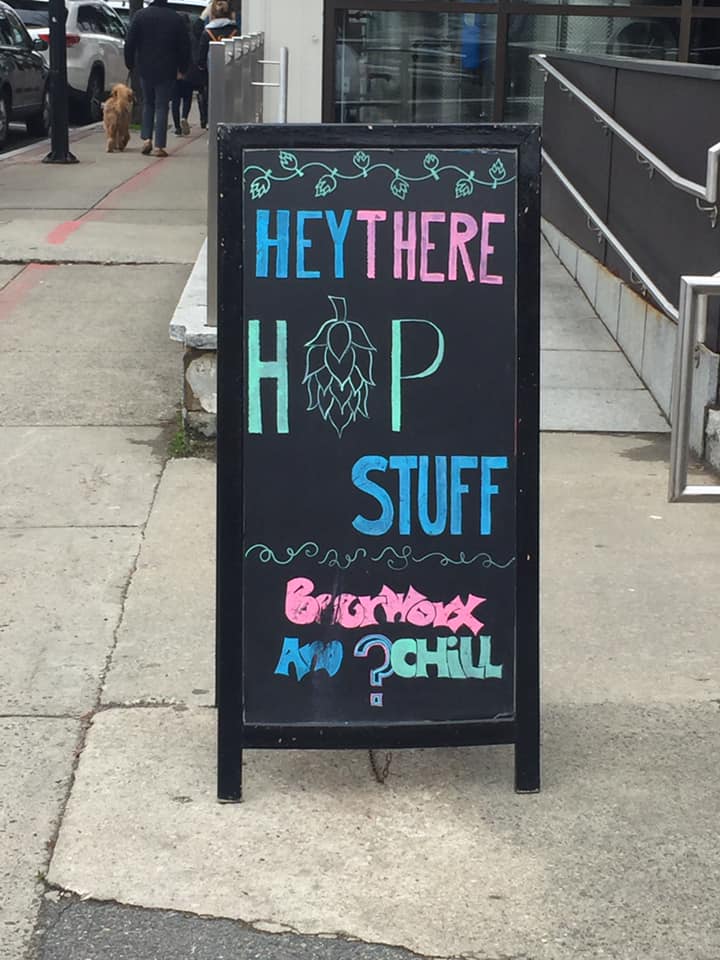 HEY THERE
HOP
STUFF
BeerWorx
AND ?CHiLL